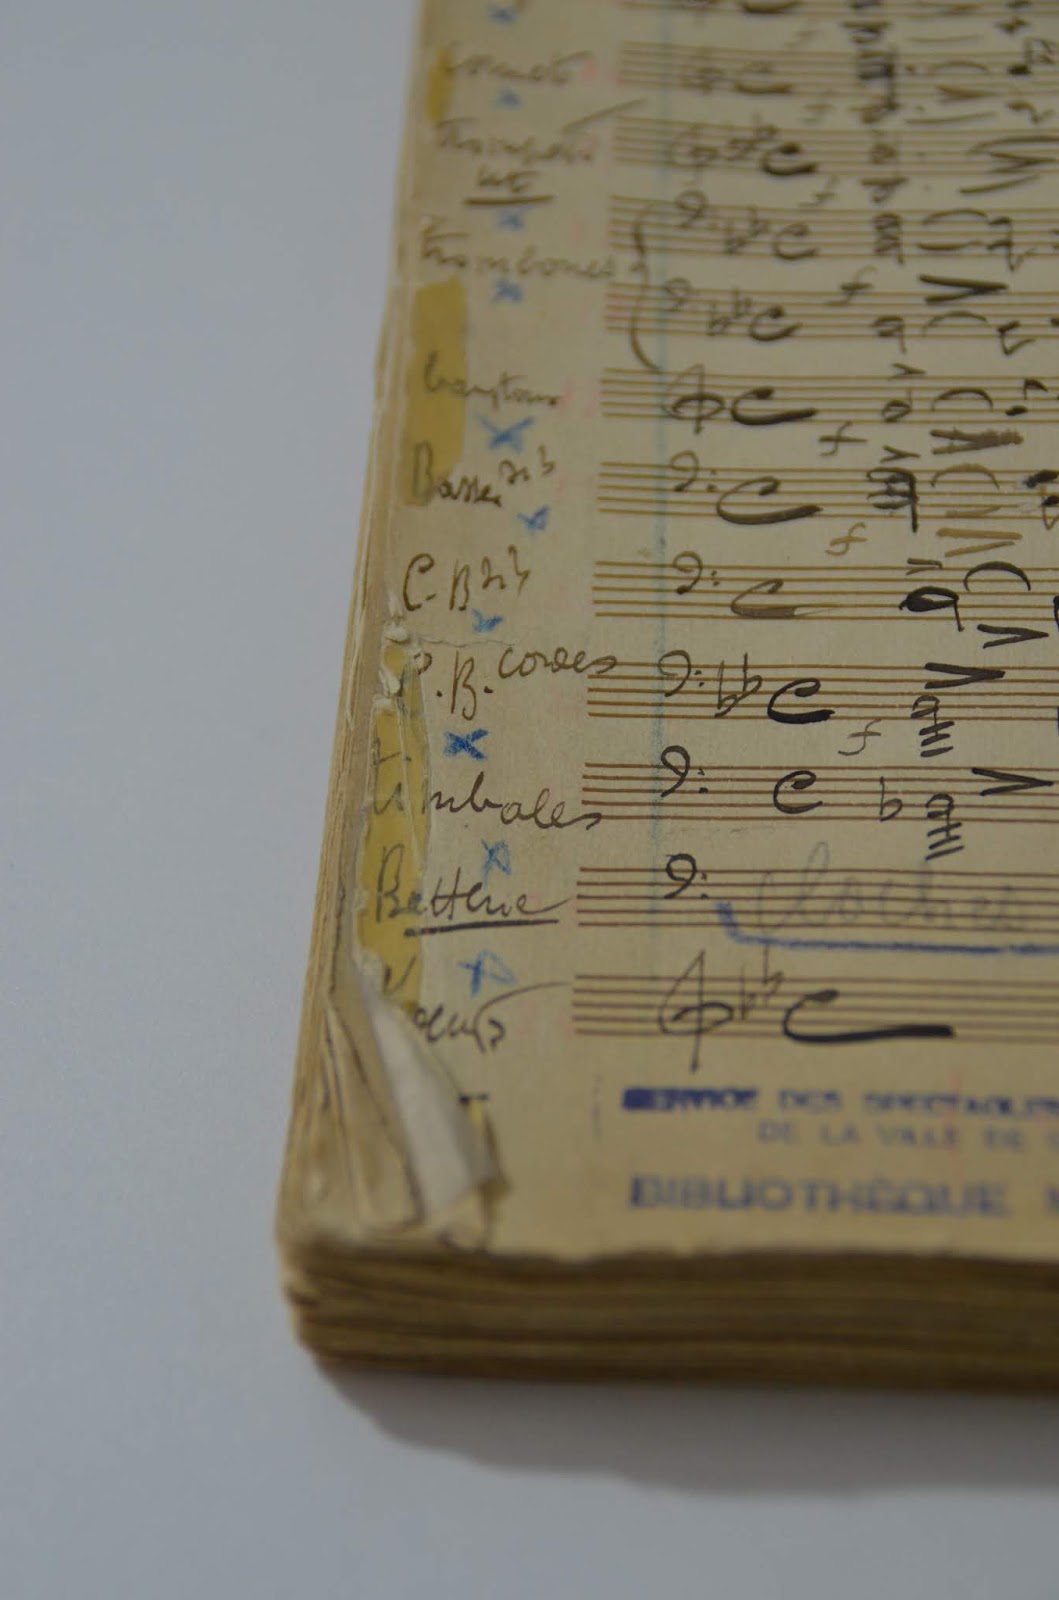 Trompettes
ut
Trombones
barytons
Basses si b
C. B si b
C. B. cordes
timbales
Batterie
Cloches
SERVICE DES SPECTACLES
DE LA VILLE DE
BIBLIOTHÈQUE